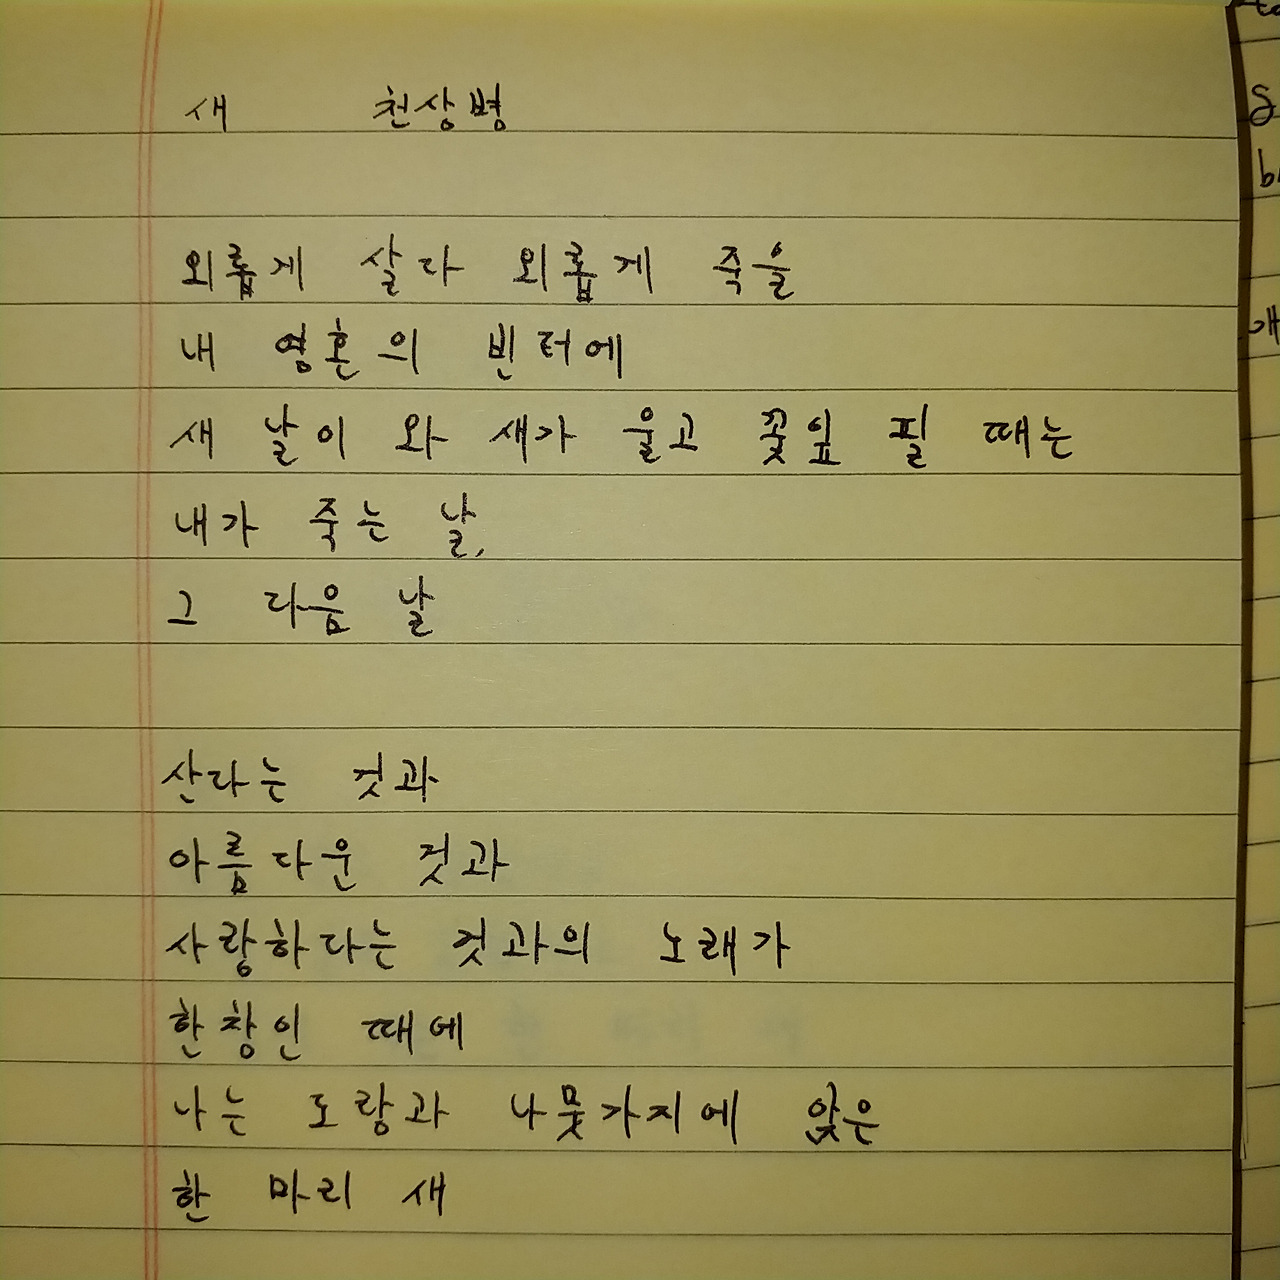 새 천상병
외롭게 살다 외롭게 죽을
내 영혼의 빈터에
새 날이 와 새가 울고 꽃잎 필 때는
내가 죽는 날,
그 다음 날
산다는 것과
아름다운 것과
사랑하다는 것과의 노래가
한창인 때에
나는 도랑과 나뭇가지에 앉은
한 마리 새